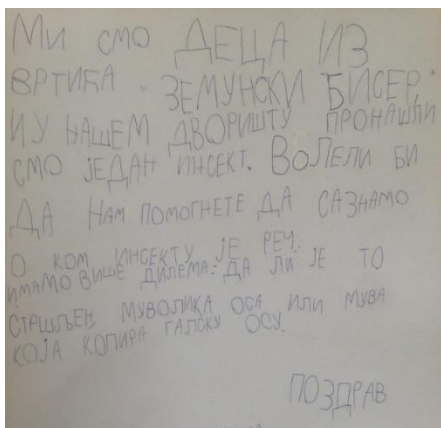 Ми смо ДЕЦА ИЗ
ВРТИЋА . ЗЕМУНСКИ БИСЕР,
И У НАШЕМ ДВОРИШТУ ПРОНАШЛИ
СМО ЈЕДАН ИНСЕКТ. ВОЛЕЛИ БИ
ДА НАМ ПОМОГНЕТЕ ДА САЗНАМО
О КОМ ИНСЕКТУ ЈЕ РЕЧ.
ИМАМО ВИШЕ ДИЛЕМА: ДА ЛИ ЈЕ ТО
СТРШЉЕН, МУВОЛИКА ОСА ИЛИ МУВА
КОЈА КОПИРА ГАЛСКУ ОСУ.
ПОЗДРАВ